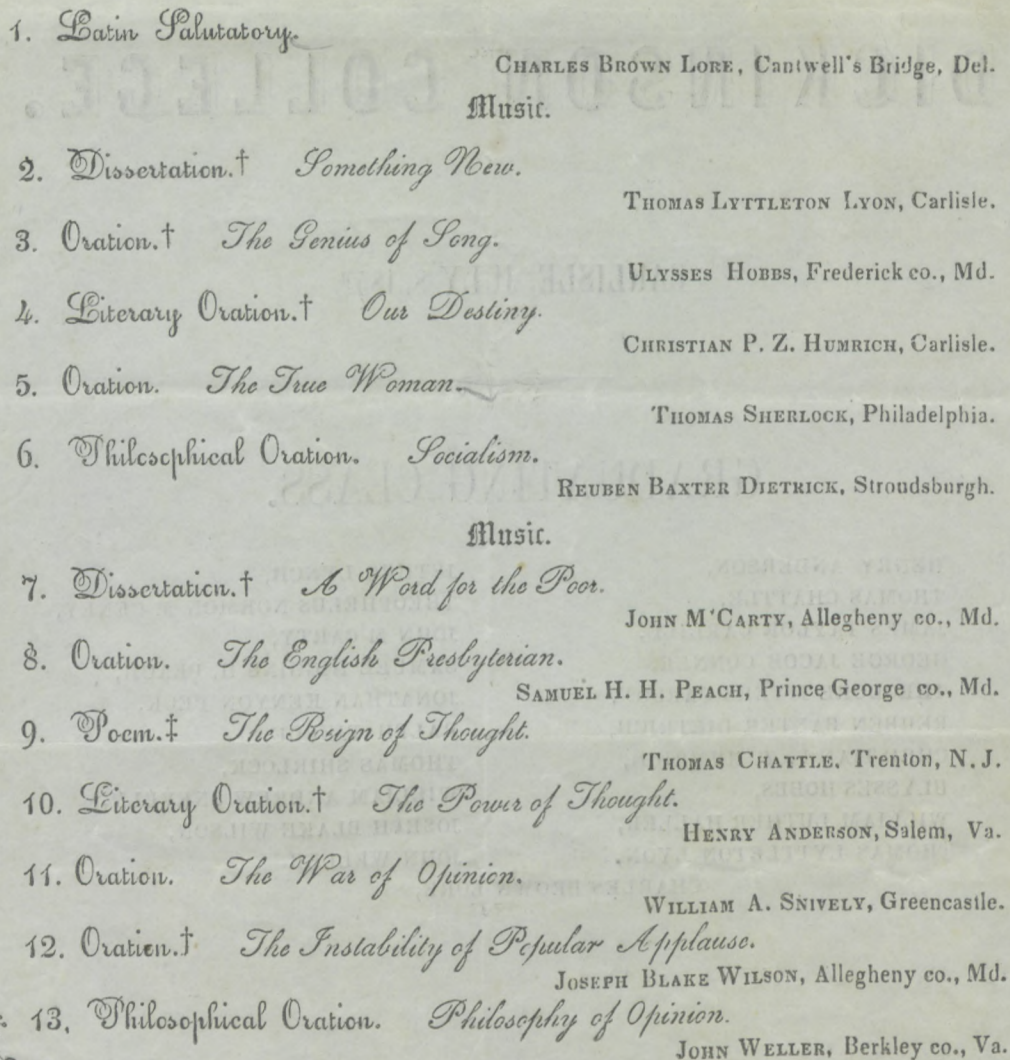 1. Latin Salutatory.
CHARLES BROWN LORE, Cantwell's Bridge, Del.
Music.
2. Dissertation.† Something New.
THOMAS LYTTLETON LYON, Carlisle.
3. Oration.† The Genius of Song.
ULYSSES HOBBS, Frederick co., Md.
4. Literary Oration.† Our Destiny.
CHRISTIAN P. Z. HUMRICH, Carlisle.
5. Oration. The True Woman.
THOMAS SHERLOCK, Philadelphia.
6. Philosophical Oration. Socialism.
REUBEN BAXTER DIETRICK, Stroudsburgh.
Music.
7. Dissertation.† A Word for the Poor.
JOHN M'CARTY, Allegheny co., Md.
8. Oration. The English Presbyterian.
SAMUEL H. H. PEACH, Prince George co., Md.
9. Poem.‡ The Reign of Thought.
THOMAS CHATTLE, Trenton, N. J.
10. Literary Oration.† The Power of Thought.
HENRY ANDERSON, Salem, Va.
11. Oration. The War of Opinion.
WILLIAM A. SNIVELY, Greencastle.
12. Oration.† The Instability of Popular Applause.
JOSEPH BLAKE WILSON, Allegheny co., Md.
13. Philosophical Oration. Philosophy of Opinion.
JOHN WELLER, Berkley co., Va.